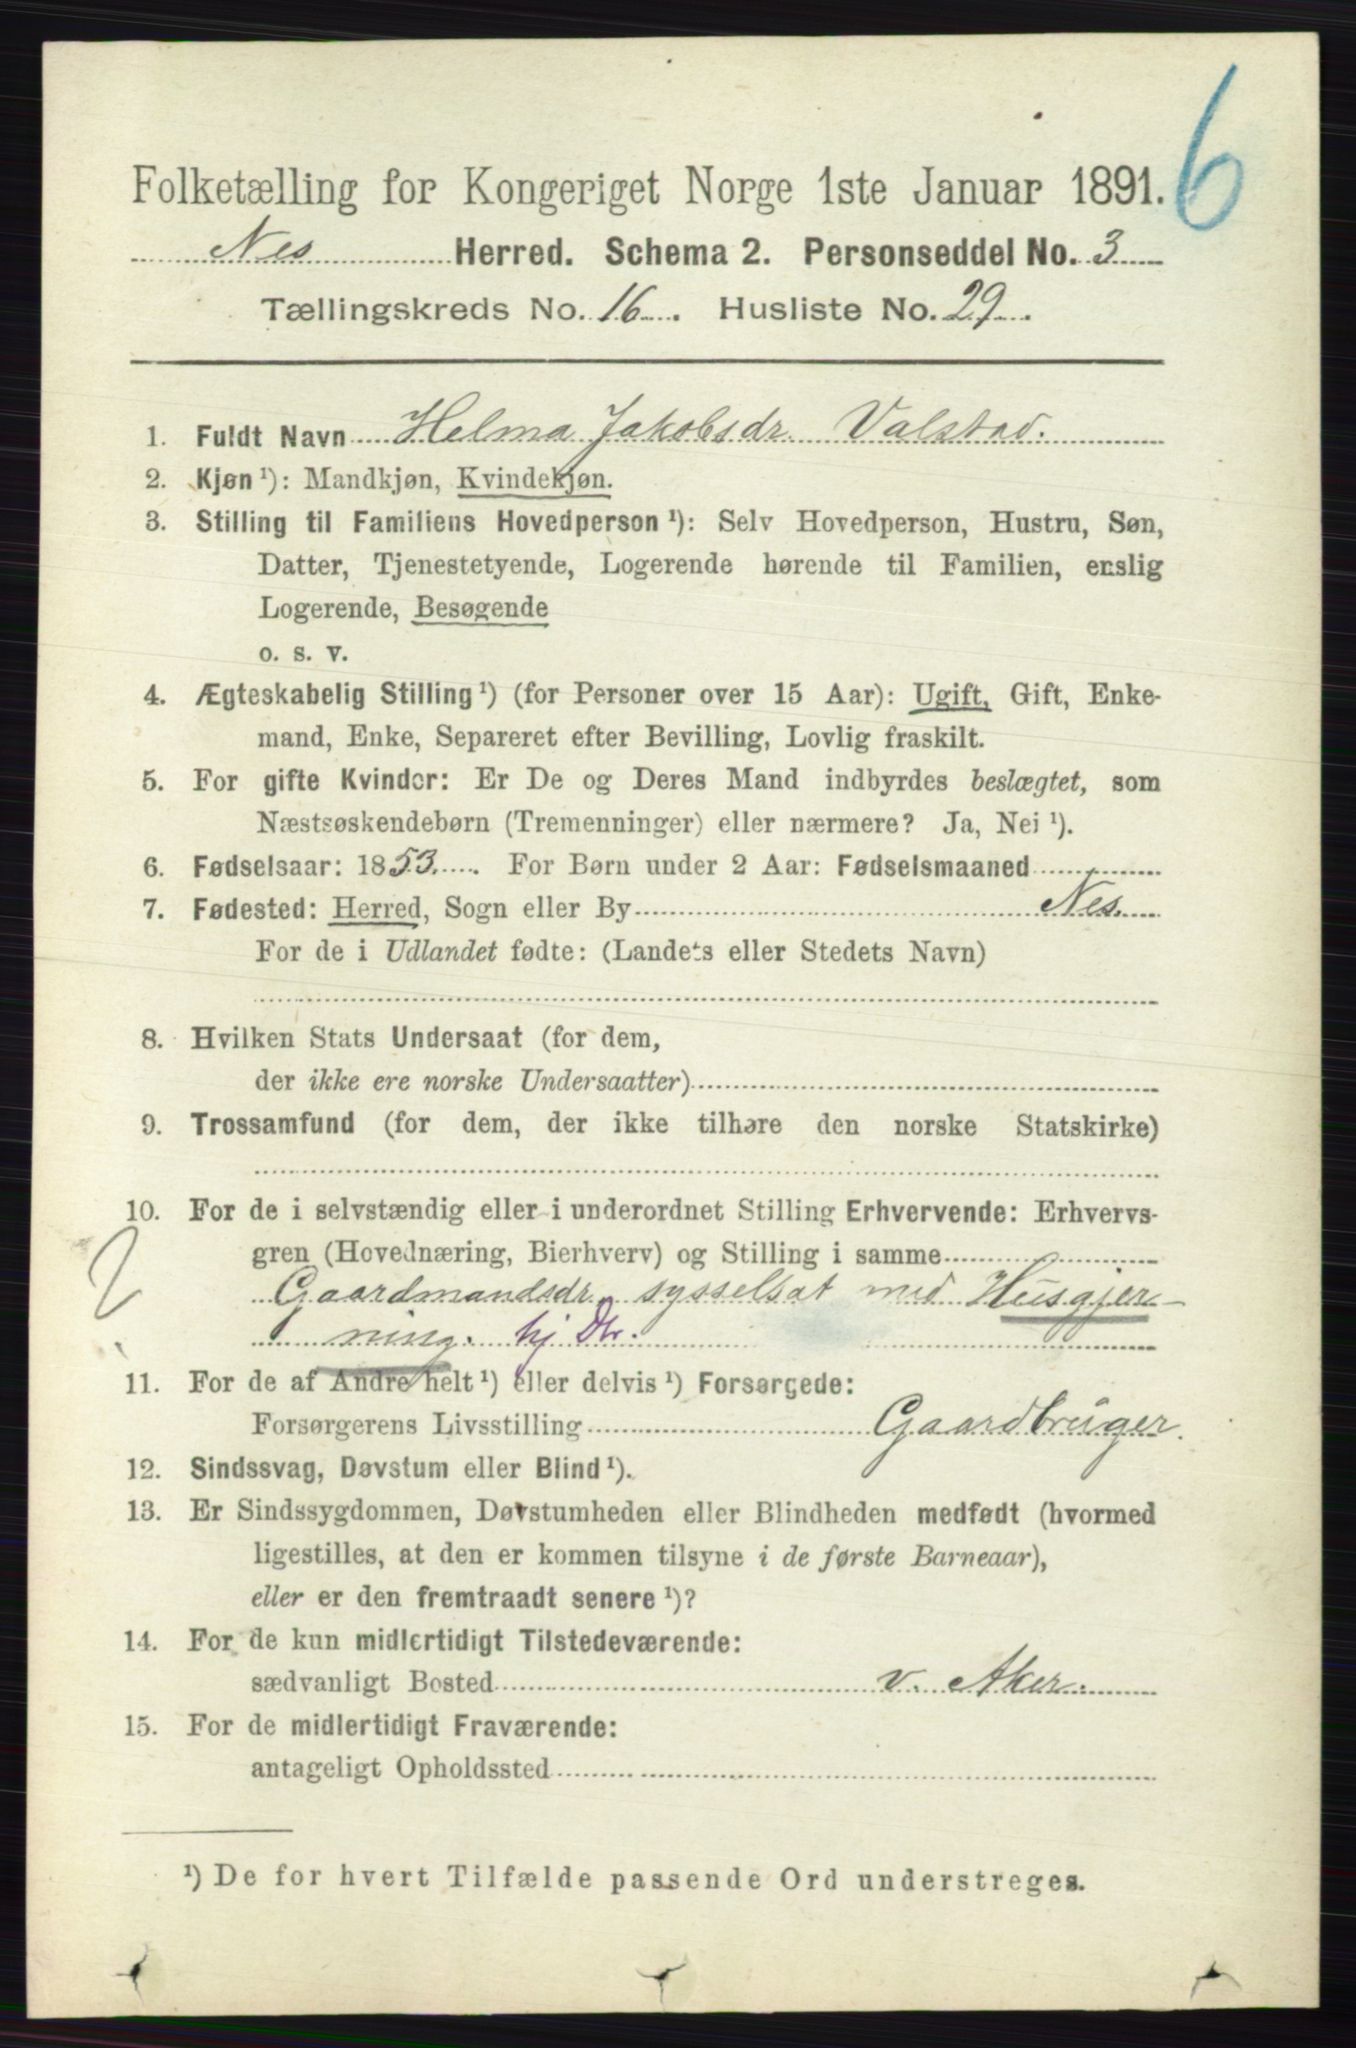 6
Folketælling for Kongeriget Norge 1ste Januar 1891.
Nes Herred. Schema 2. Personseddel No. 3
Tællingskreds No. 16. Husliste No. 29.
1. Fuldt Navn Helma Jakobsdr. Valstad.
2. Kjøn ¹): Mandkjøn, Kvindekjøn.
3. Stilling til Familiens Hovedperson ¹): Selv Hovedperson, Hustru, Søn,
Datter, Tjenestetyende, Logerende hørende til Familien, enslig
Logerende, Besøgende
o. s. v.
4. Ægteskabelig Stilling ¹) (for Personer over 15 Aar): Ugift, Gift, Enke-
mand, Enke, Separeret efter Bevilling, Lovlig fraskilt.
5. For gifte Kvinder: Er De og Deres Mand indbyrdes beslægtet, som
Næstsøskendebørn (Tremenninger) eller nærmere? Ja, Nei ¹).
6. Fødselsaar: 1853. For Børn under 2 Aar: Fødselsmaaned
7. Fødested: Herred, Sogn eller By Nes.
For de i Udlandet fødte: (Landets eller Stedets Navn)
8. Hvilken Stats Undersaat (for dem,
der ikke ere norske Undersaatter)
9. Trossamfund (for dem, der ikke tilhøre den norske Statskirke)
10. For de i selvstændig eller i underordnet Stilling Erhvervende: Erhvervs-
gren (Hovednæring, Bierhverv) og Stilling i samme
2 Gaardmandsdr. sysselsat med Husgjer-
ning. hj Dtr.
11. For de af Andre helt ¹) eller delvis ¹) Forsørgede:
Forsørgerens Livsstilling Gaardbruger.
12. Sindssvag, Døvstum eller Blind ¹).
13. Er Sindssygdommen, Døvstumheden eller Blindheden medfødt (hvormed
ligestilles, at den er kommen tilsyne i de første Barneaar),
eller er den fremtraadt senere ¹)?
14. For de kun midlertidigt Tilstedeværende:
sædvanligt Bosted v. Aker.
15. For de midlertidigt Fraværende:
antageligt Opholdssted
¹) De for hvert Tilfælde passende Ord understreges.